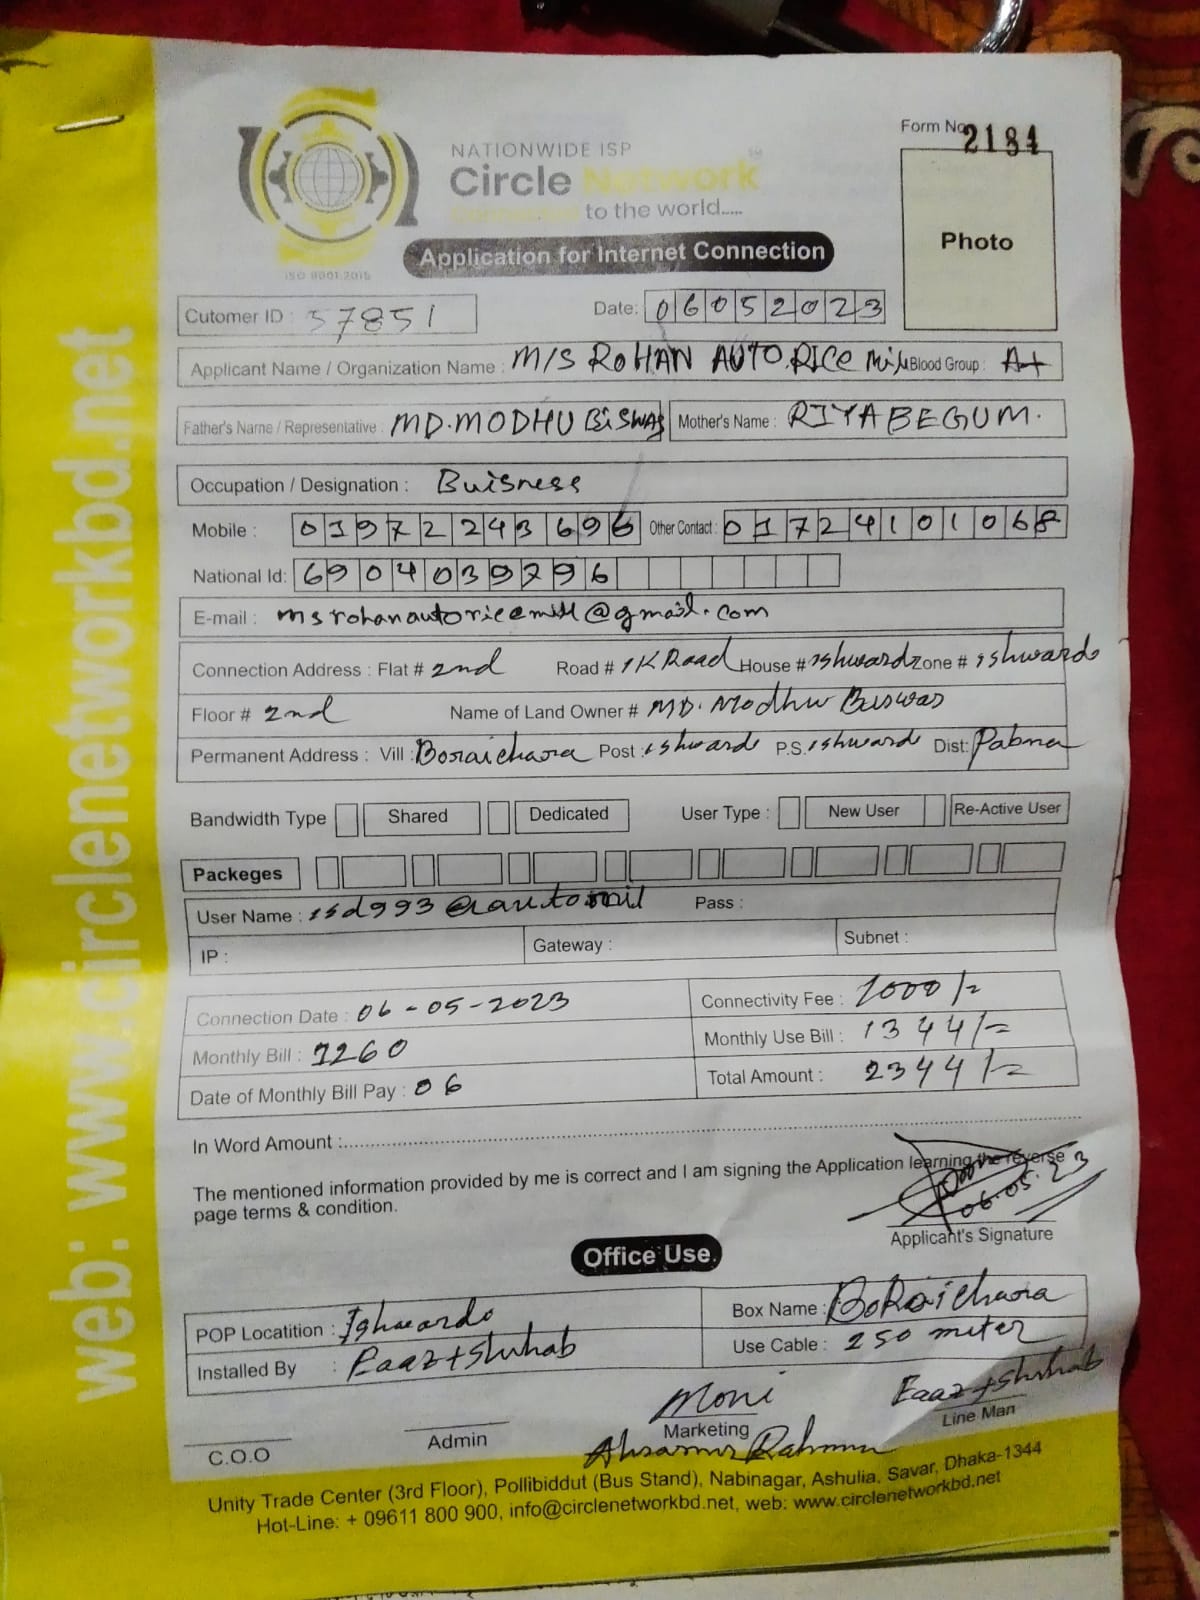 Form No. 2184
NATIONWIDE ISP
Circle Network
Connected to the world.....
ISO 9001:2015
Application for Internet Connection
Photo
Cutomer ID : 57851 Date: 06052023
Applicant Name / Organization Name : M/S ROHAN AUTO RICE Mill Blood Group : A+
Father's Name / Representative : MD. MODHU BISWAS Mother's Name : RIYA BEGUM.
Occupation / Designation : Buisness
Mobile : 01972243696 Other Contact : 01724101068
National Id: 6904039796
E-mail : msrohanautoricemill@gmail.com
Connection Address : Flat # 2nd Road # IK Road House # ishwardi Zone # ishwardi
Floor # 2nd Name of Land Owner # MD. Modhu Biswas
Permanent Address : Vill : Boraichara Post : ishwardi P.S. ishwardi Dist: Pabna
Bandwidth Type Shared Dedicated User Type : New User Re-Active User
Packeges
User Name : isd993@automil Pass :
IP : Gateway : Subnet :
Connection Date : 06-05-2023 Connectivity Fee : 1000/=
Monthly Bill : 1260 Monthly Use Bill : 1344/=
Date of Monthly Bill Pay : 06 Total Amount : 2344/=
In Word Amount :
The mentioned information provided by me is correct and I am signing the Application learning the reverse
page terms & condition.
06.05.23
Applicant's Signature
Office Use
POP Locatition : Ishwardi Box Name : Boraichara
Installed By : Eaaz+Shihab Use Cable : 250 meter
Moni Eaaz+Shihab
C.O.O Admin Marketing Line Man
Rahman
Unity Trade Center (3rd Floor), Pollibiddut (Bus Stand), Nabinagar, Ashulia, Savar, Dhaka-1344
Hot-Line: + 09611 800 900, info@circlenetworkbd.net, web: www.circlenetworkbd.net
web: www.circlenetworkbd.net